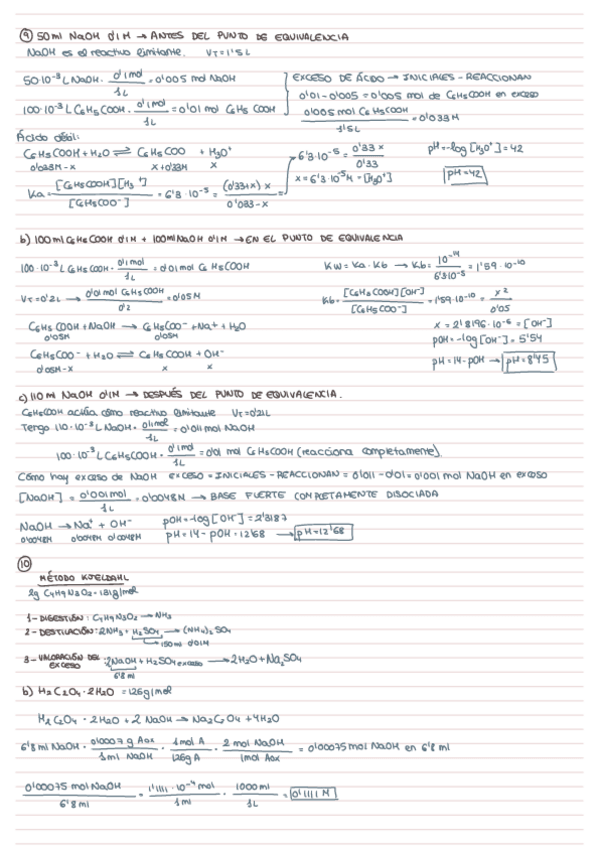 9) 50 ml NaOH 0'1M → ANTES DEL PUNTO DE EQUIVALENCIA
NaOH es el reactivo limitante. VT = 1'5L
50·10⁻³ L NaOH · 0'1mol/1L = 0'005 mol NaOH
100·10⁻³ L C6H5COOH · 0'1mol/1L = 0'01 mol C6H5COOH
EXCESO DE ÁCIDO → INICIALES - REACCIONAN
0'01 - 0'005 = 0'005 mol de C6H5COOH en exceso
0'005 mol C6H5COOH / 1'5L = 0'033M
Ácido débil:
C6H5COOH + H2O ⇌ C6H5COO + H3O⁺
0'033M-x x+033M x
Ka = [C6H5COOH][H3⁺] / [C6H5COO⁻] = 6'3·10⁻⁵ = (0'33+x) x / 0'033-x
6'3·10⁻⁵ = 0'33 x / 0'33
x = 6'3·10⁻⁵M = [H3O⁺]
pH = -log [H3O⁺] = 42
pH = 42
b) 100 ml C6H5COOH 0'1M + 100ml NaOH 0'1M → EN EL PUNTO DE EQUIVALENCIA
100·10⁻³ L C6H5COOH · 0'1mol/1L = 0'01 mol C6H5COOH
VT = 0'2L → 0'01 mol C6H5COOH / 0'2 = 0'05M
C6H5COOH + NaOH → C6H5COO⁻ + Na⁺ + H2O
0'05M 0'05M
C6H5COO⁻ + H2O ⇌ C6H5COOH + OH⁻
0'05M-x x x
Kw = Ka · Kb → Kb = 10⁻¹⁴ / 6'3·10⁻⁵ = 1'59·10⁻¹⁰
Kb = [C6H5COOH][OH⁻] / [C6H5COO⁻] = 1'59·10⁻¹⁰ = x² / 0'05
x = 2'8196·10⁻⁶ = [OH⁻]
pOH = -log [OH⁻] = 5'54
pH = 14 - pOH → pH = 8'45
c) 110 ml NaOH 0'1M → DESPUÉS DEL PUNTO DE EQUIVALENCIA.
C6H5COOH actúa cómo reactivo limitante VT = 0'21L
Tengo 110·10⁻³ L NaOH · 0'1mol/1L = 0'011 mol NaOH
100·10⁻³ L C6H5COOH · 0'1mol/1L = 0'01 mol C6H5COOH (reacciona completamente)
Cómo hay exceso de NaOH EXCESO = INICIALES - REACCIONAN = 0'011 - 0'01 = 0'001 mol NaOH en exceso
[NaOH] = 0'001mol/1L = 0'0048M → BASE FUERTE COMPLETAMENTE DISOCIADA
NaOH → Na⁺ + OH⁻
0'0048M 0'0048M 0'0048M
pOH = -log [OH⁻] = 2'3187
pH = 14 - pOH = 12'68 → pH = 12'68
10
MÉTODO KJELDAHL
2g C4H9N3O2 = 131g/mol
1 - DIGESTIÓN: C4H9N3O2 → NH3
2 - DESTILACIÓN: 2NH3 + H2SO4 → (NH4)2SO4
→ 150 ml 0'01M
3 - VALORACIÓN DEL EXCESO : 2NaOH + H2SO4 exceso → 2H2O + Na2SO4
6'8 ml
b) H2C2O4·2H2O = 126g/mol
H2C2O4·2H2O + 2 NaOH → Na2C2O4 + 4H2O
6'8 ml NaOH · 0'0007 g Aox / 1ml NaOH · 1mol A / 126g A · 2 mol NaOH / 1mol Aox = 0'00075 mol NaOH en 6'8 ml
0'00075 mol NaOH / 6'8 ml = 1'1111·10⁻⁴ mol / 1ml · 1000ml / 1L = 0'1111 M